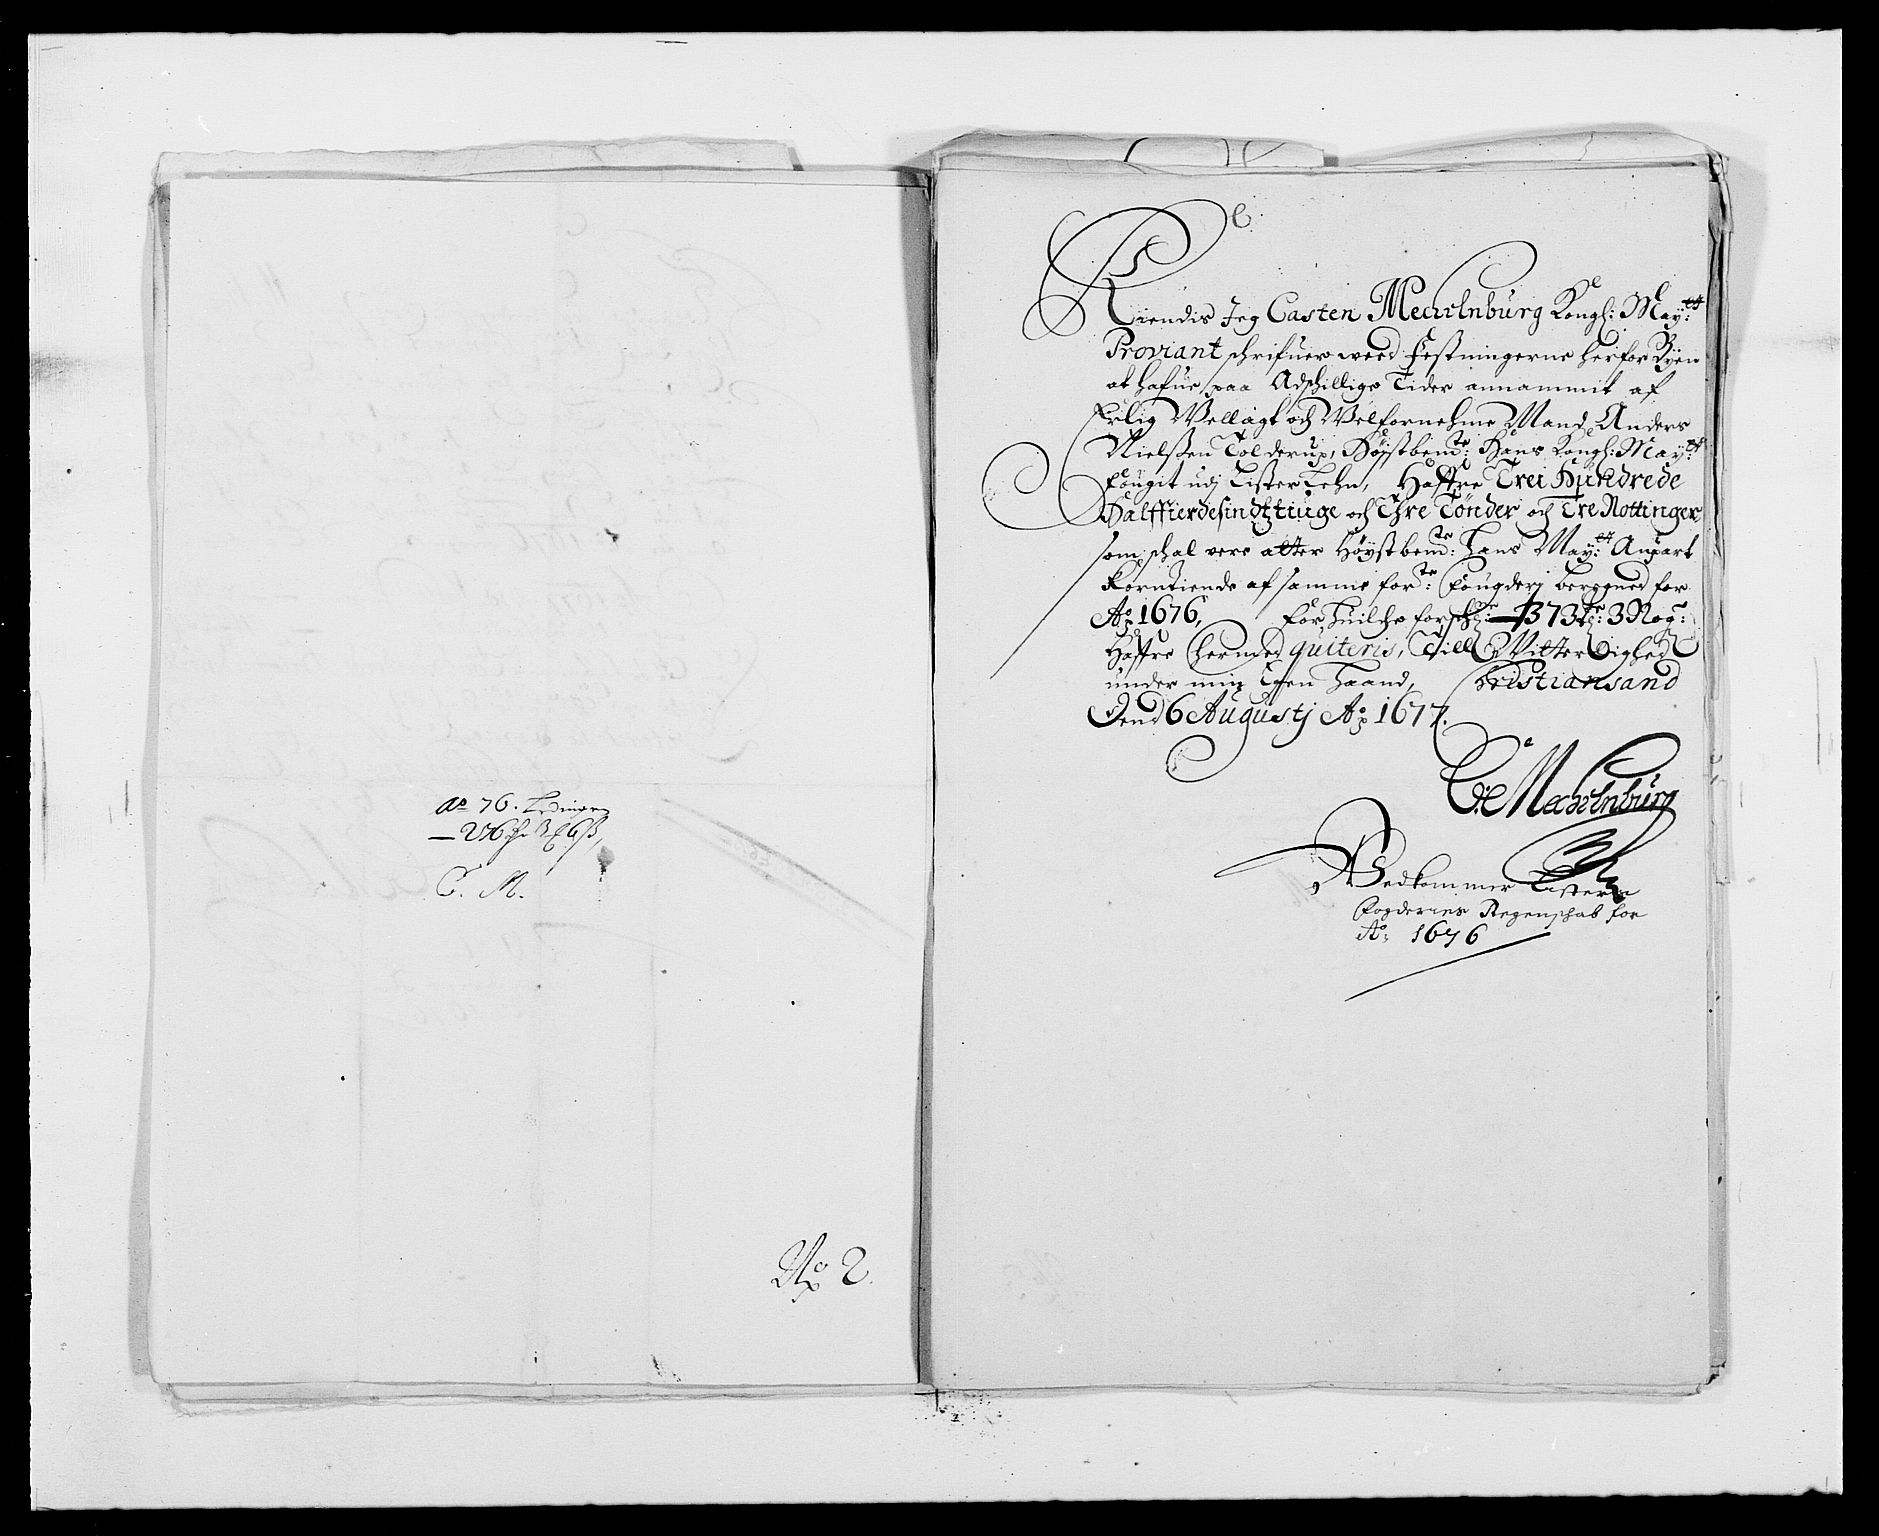 Ao 76. Ledingen
C. M.
No 2.
Kiendis Jeg Casten Mecklnburg Kongl: May:ett
Proviant schrifuer weed Festningerne herfor Byen
at hafue paa Adschillige Tider annammit af
Erlig Vellagt och Velfornehme Mand Anders
Nielßen Tolderup, Høystbem:te Hans Kongl: May:ett
Fougit udj Lister Lehn, Haffre Trei Hundrede
Halffierdesindtztiuge och Thre Tønder och Tre Nottinger
som schal vere atter Høystbem:te Hans May:ett Anpart
Korntiende af samme for:te Fougderj beregned for
Ao 1676, For huilche forsch:ne 373 tr: 3 Nog:
Haffre hermed quiteris, Till Vitterlighed
under min Egen Haand, Christiansand
Dend 6 Augustj Ao 1677.
C: Mecklnburg
Vedkommer Listers
Fogderies Regenschab for
Ao: 1676